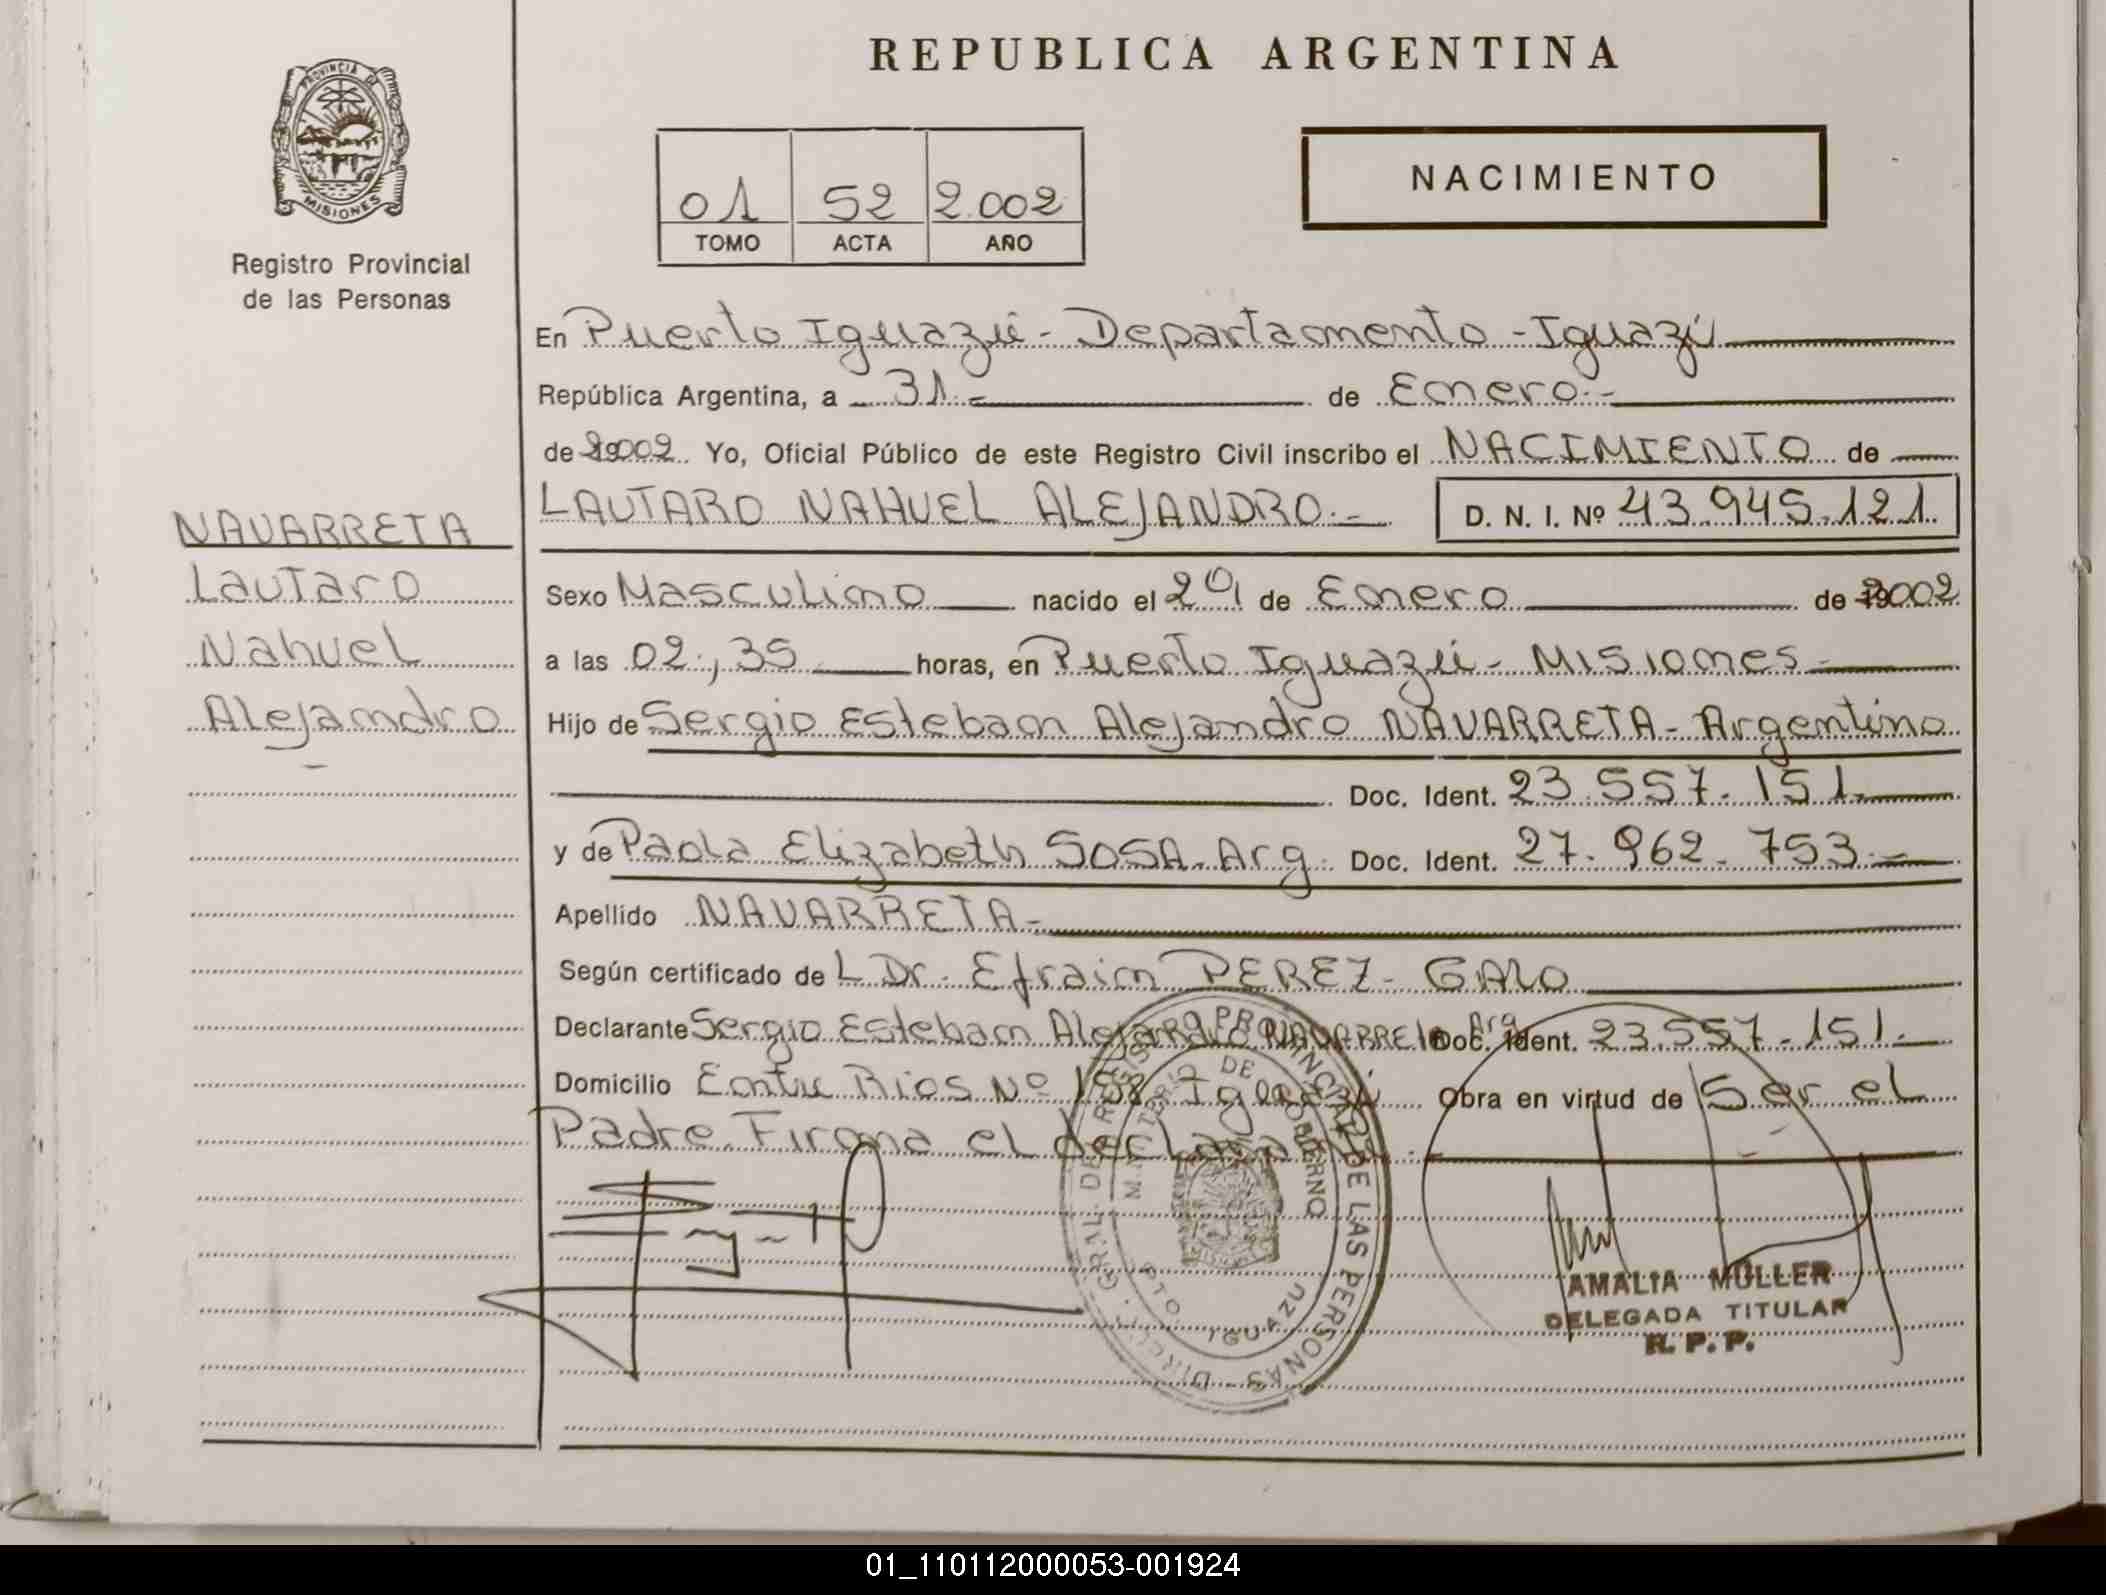 REPUBLICA ARGENTINA
PROVINCIA DE
MISIONES
Registro Provincial
de las Personas
01 52 2.002
TOMO ACTA AÑO
NACIMIENTO
En Puerto Iguazú - Departamento - Iguazú
República Argentina, a 31.- de Enero.-
de 2002. Yo, Oficial Público de este Registro Civil inscribo el NACIMIENTO de
LAUTARO NAHUEL ALEJANDRO.- D. N. I. Nº 43.945.121.
NAVARRETA
Lautaro
Nahuel
Alejandro
-
Sexo Masculino nacido el 29 de Enero de 2002
a las 02,35 horas, en Puerto Iguazú - Misiones -
Hijo de Sergio Esteban Alejandro NAVARRETA - Argentino
Doc. Ident. 23.557.151.
y de Paola Elizabeth SOSA. Arg. Doc. Ident. 27.962.753.-
Apellido NAVARRETA -
Según certificado de L Dr. Efraim PEREZ - GALO
Declarante Sergio Esteban Alejandro NAVARRETA Arg Doc. Ident. 23.557.151.-
Domicilio Entre Rios Nº Iguazú Obra en virtud de Ser el
Padre. Firma el
DIREC. GRAL. DE REGISTRO PROVINCIAL DE LAS PERSONAS
MINISTERIO DE GOBIERNO
PTO. IGUAZU
AMALIA MULLER
DELEGADA TITULAR
R. P. P.
01_110112000053-001924